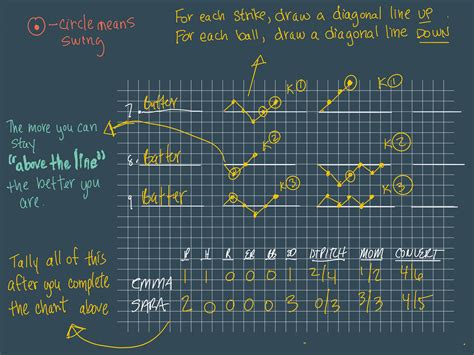 -circle means swing
For each strike, draw a diagonal line UP.
For each ball, draw a diagonal line DOWN
7. batter K①
K①
The more you can
stay
"above the line"
the better you
are.
8. Batter K②
K②
9. Batter K③
K③
Tally all of this
after you complete
the chart above
P H R BB
EMMA 1 1 0 0 0 1 2/4 1/2 4/6
SARA 2 0 0 0 0 3 0/3 3/3 4/5
MOM CONVERT